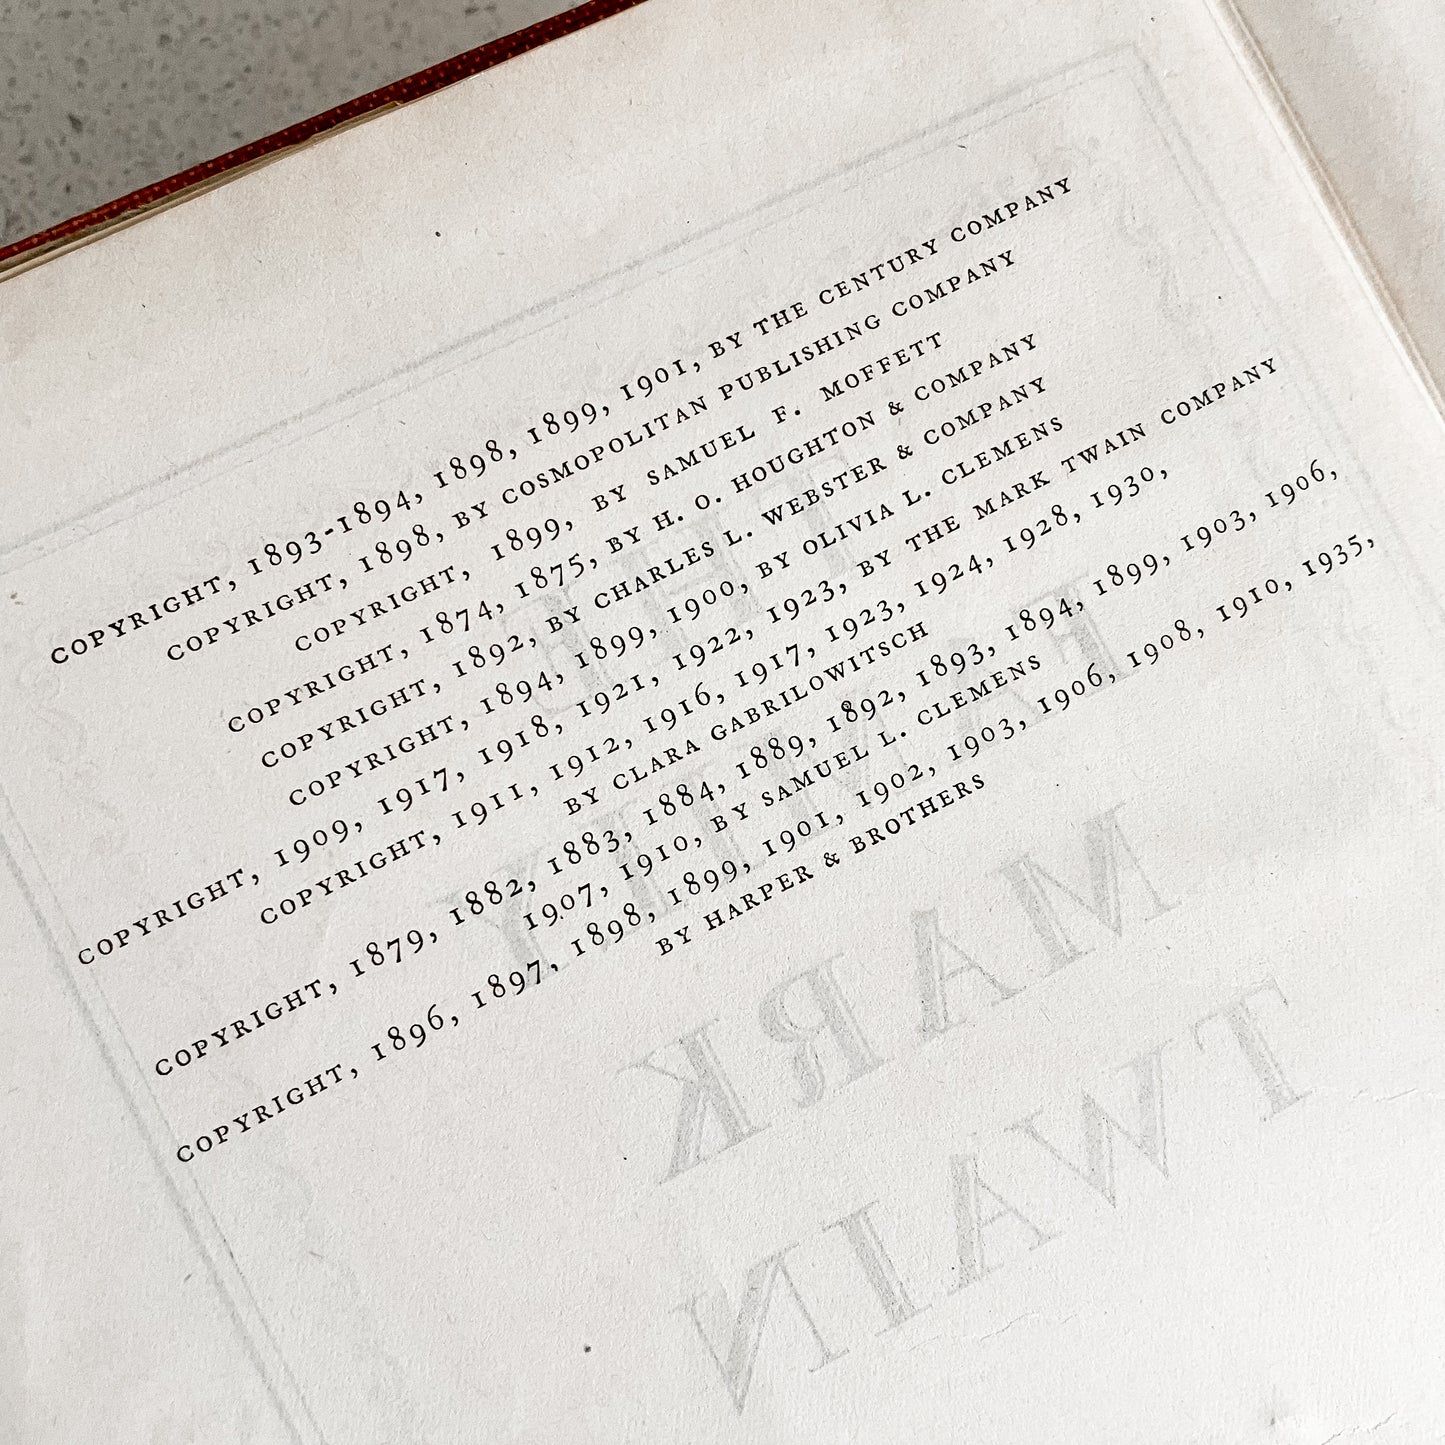 COPYRIGHT, 1893-1894, 1898, 1899, 1901, BY THE CENTURY COMPANY
COPYRIGHT, 1898, BY COSMOPOLITAN PUBLISHING COMPANY
COPYRIGHT, 1899, BY SAMUEL F. MOFFETT
COPYRIGHT, 1874, 1875, BY H. O. HOUGHTON & COMPANY
COPYRIGHT, 1892, BY CHARLES L. WEBSTER & COMPANY
COPYRIGHT, 1894, 1899, 1900, BY OLIVIA L. CLEMENS
COPYRIGHT, 1909, 1917, 1918, 1921, 1922, 1923, BY THE MARK TWAIN COMPANY
COPYRIGHT, 1911, 1912, 1916, 1917, 1923, 1924, 1928, 1930,
BY CLARA GABRILOWITSCH
COPYRIGHT, 1879, 1882, 1883, 1884, 1889, 1892, 1893, 1894, 1899, 1903, 1906,
1907, 1910, BY SAMUEL L. CLEMENS
COPYRIGHT, 1896, 1897, 1898, 1899, 1901, 1902, 1903, 1906, 1908, 1910, 1935,
BY HARPER & BROTHERS
THE
FAMILY
MARK
TWAIN